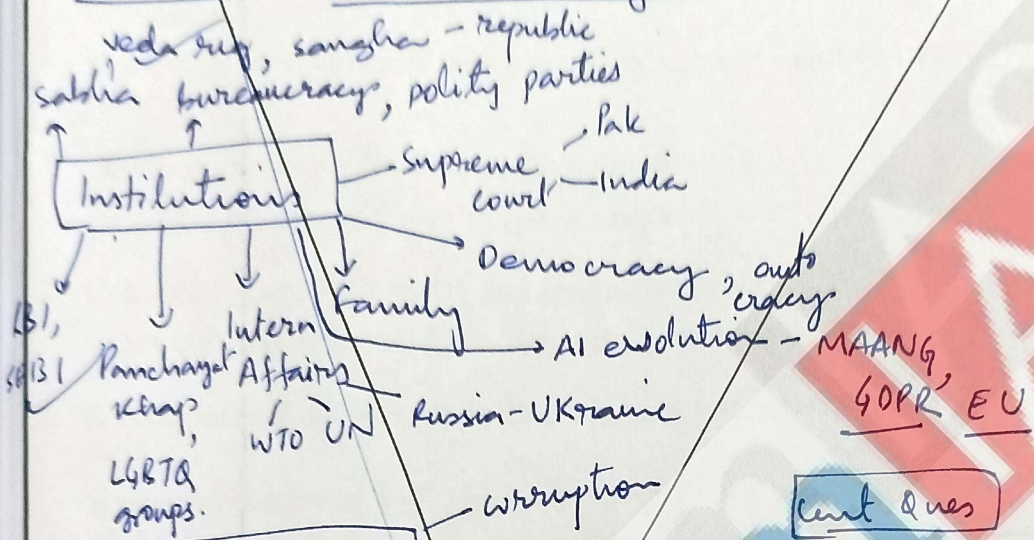 veda, sangha - republic
sabha bureaucracy, polity parties
Institutions
Supreme Court
Pak
India
Democracy, auto
cracy
family
AI evolution - MAANG,
GDPR, EU
SEBI
Panchayat
Khap,
LGBTQ
groups.
Intern
Affairs
WTO UN
Russia-Ukraine
corruption
Ques